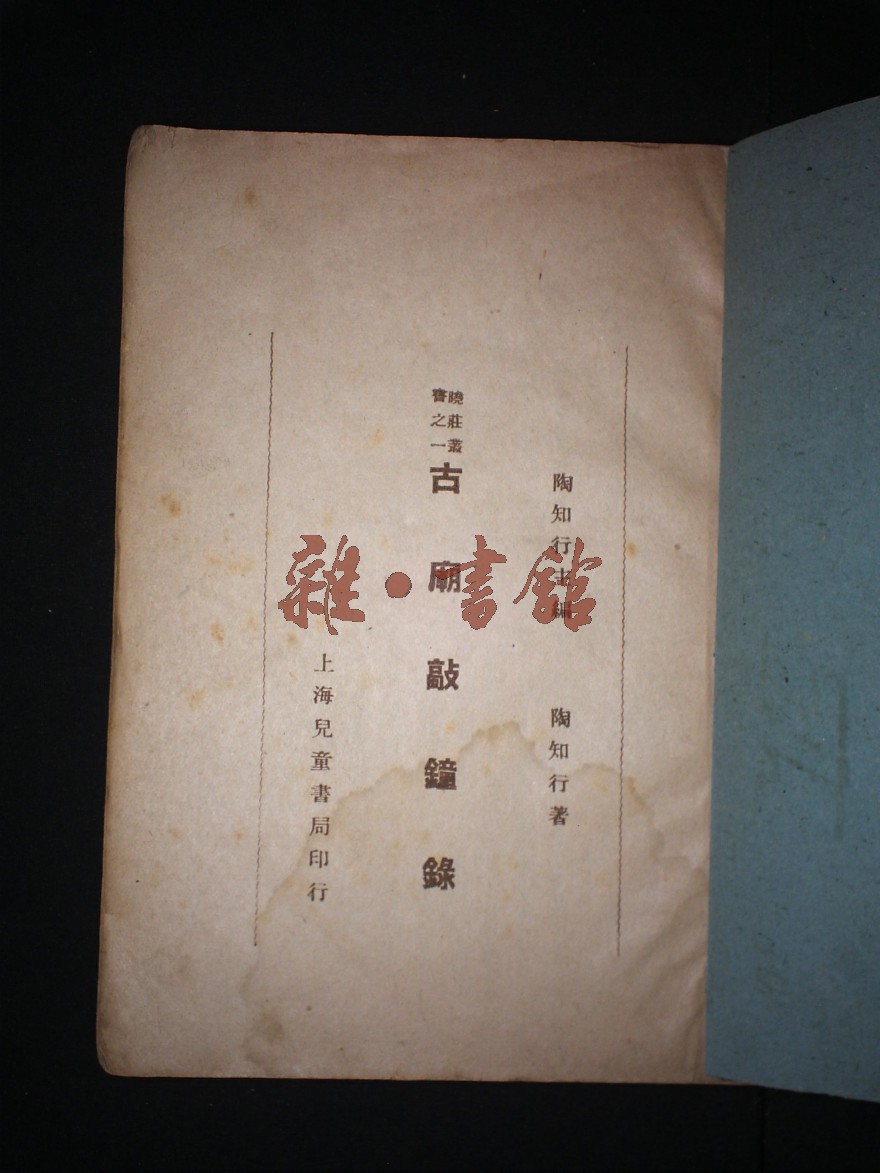 陶知行主編　陶知行著
曉莊叢
書之一
古廟敲鐘錄
上海兒童書局印行
雜·書館